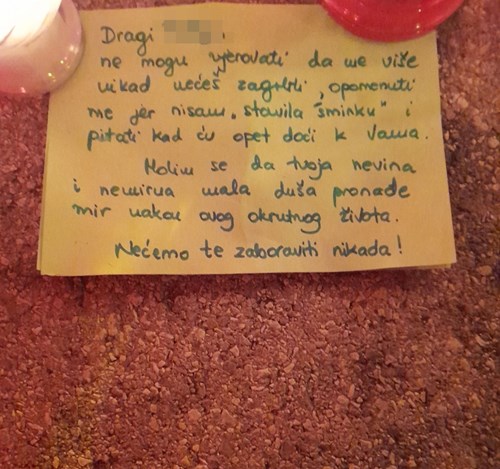 Dragi
ne mogu vjerovati da me više
nikad nećeš zagrliti, opomenuti
me jer nisam „stavila "šminku" i
pitati kad ću opet doći k Vama.
Molim se da tvoja nevina
i nemirna mala duša pronađe
mir nakon ovog okrutnog života.
Nećemo te zaboraviti nikada!